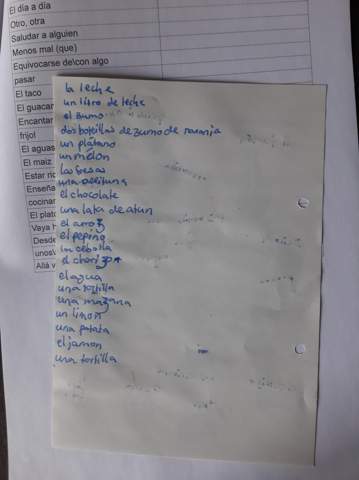 El día a día
Otro, otra
Saludar a alguien
Menos mal (que)
Equivocarse de\con algo
pasar
El taco
El guacar
Encantar
frijol
El aguas
El maiz
Estar ric
Enseña
cocinar
El plato
Vaya h
Desde
unos\
Allá v
la leche
un litro de leche
el zumo
dos botellas de zumo de naranja
un plátano
un melón
las fresas
una aceituna
el chocolate
una lata de atun
el arroz
el pepino
la cebolla
el chorizo
el agua
una tortilla
una mazana
un limon
una patata
el jamon
una tortilla